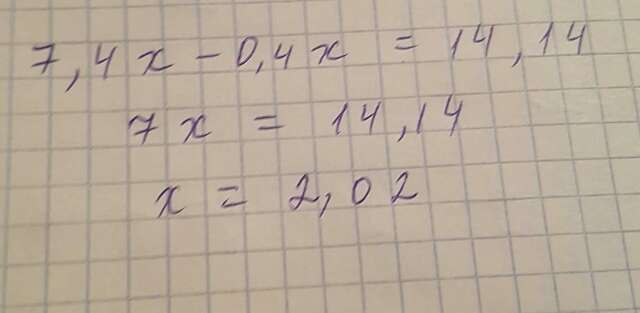 7,4x - 0,4x = 14,14
7x = 14,14
x = 2,02